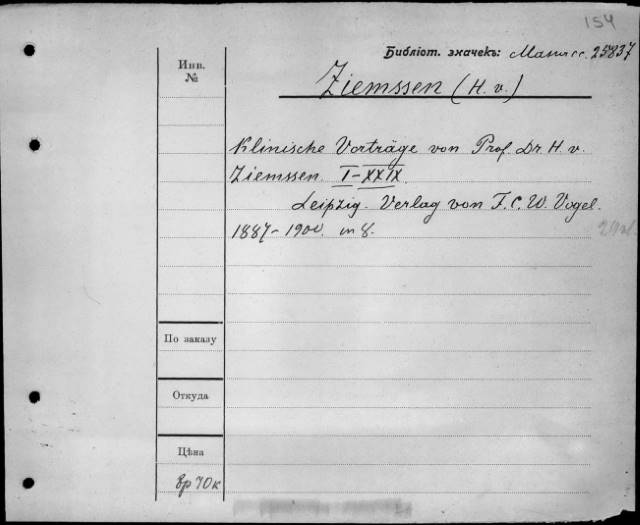 154
Библіот. значекъ: 25837
Инв.
№
Ziemssen (H. v.)
Klinische Vorträge von Prof. Dr. H. v.
Ziemssen. I-XXIX.
Leipzig. Verlag von F. C. W. Vogel.
1887-1900. in 8.
По заказу
Откуда
Цѣна
70к